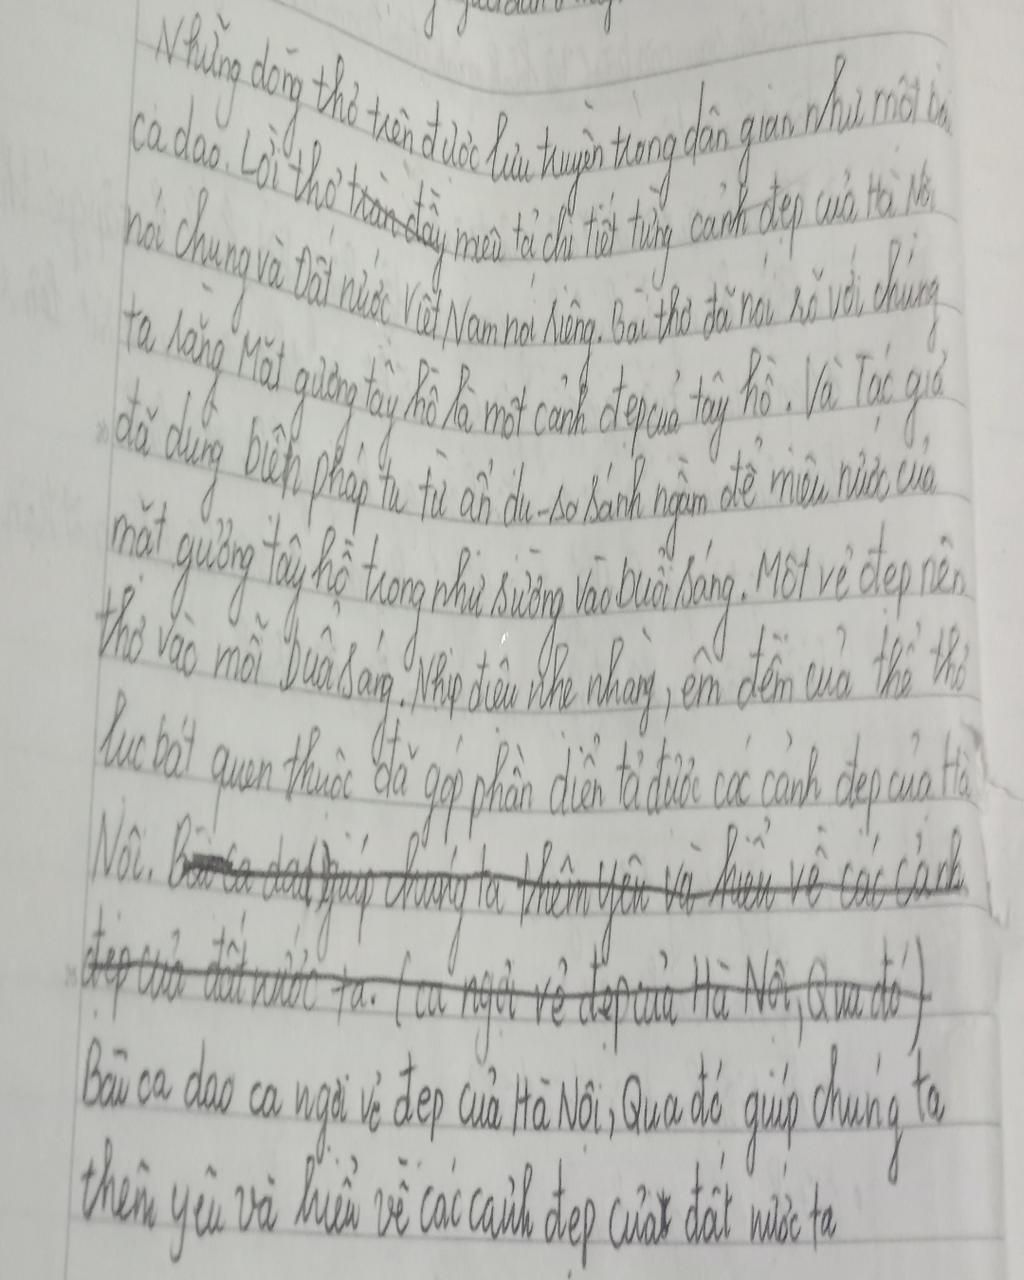 Những dòng thơ trên được lưu truyền trong dân gian như một bài
ca dao. Lời thơ tràn đầy miêu tả chi tiết từng cảnh đẹp của Hà Nội
nói chung và Đất nước Việt Nam nói riêng. Bài thơ đã nói rõ với chúng
ta rằng Mặt gương tây hồ là một cảnh đẹp của tây hồ. Và Tác giả
đã dùng biện pháp tu từ ẩn dụ - so sánh ngầm để miêu nước của
mặt gương tây hồ trong như sương vào buổi sáng. Một vẻ đẹp nên
thơ vào mỗi buổi sáng. Nhịp điệu nhẹ nhàng, êm đềm của thể thơ
lục bát quen thuộc đã góp phần diễn tả được các cảnh đẹp của Hà
Nội. Bài ca dao giúp chúng ta thêm yêu và hiểu về các cảnh
đẹp của đất nước ta. (ca ngợi vẻ đẹp của Hà Nội, Qua đó)
Bài ca dao ca ngợi vẻ đẹp của Hà Nội, Qua đó giúp chúng ta
thêm yêu và hiểu về các cảnh đẹp của đất nước ta